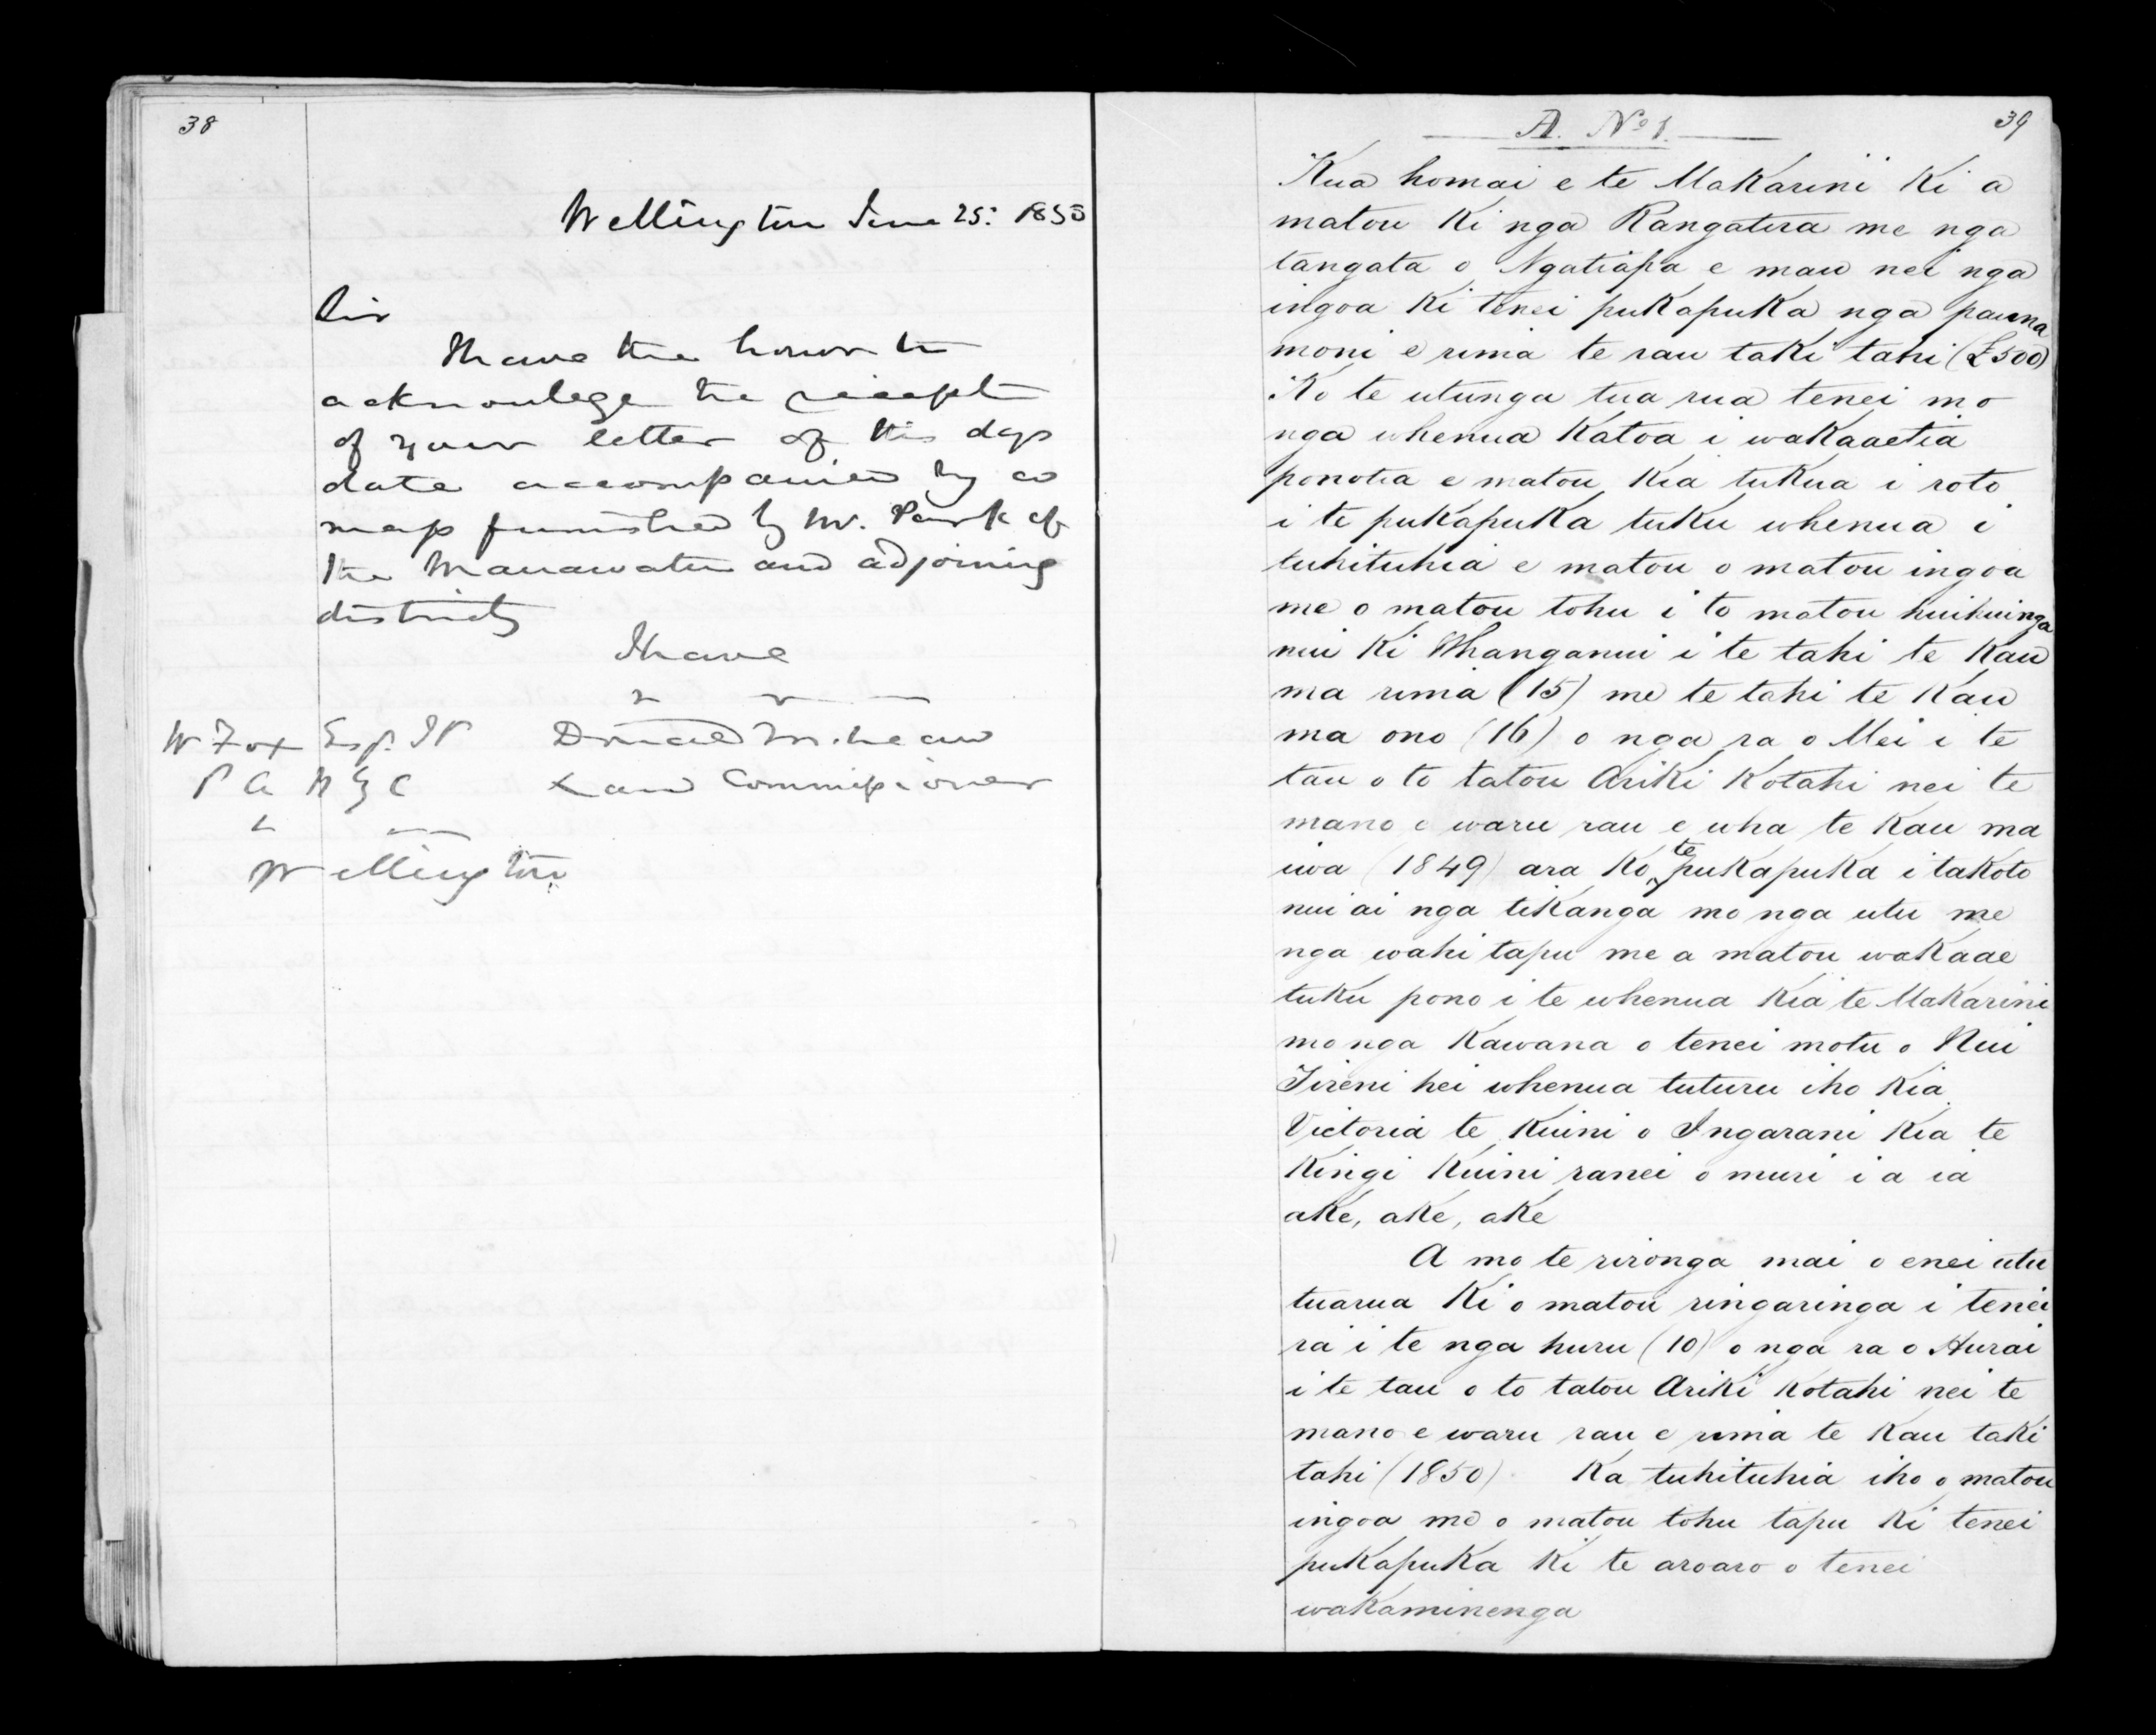 38
Wellington June 25: 1850
Sir
I have the honor to
acknowlege the receipt
of your letter of this days
date accompanied by a
map furnished by Mr. Park of
the Manawatu and adjoining
districts
I have
W Fox Esq. JP
Donald McLean
P A N Z C
Land Commissioner
Wellington
39
A. No 1.
Kua homai e te Makarini ki a
matou ki nga Rangatira me nga
tangata o Ngatiapa e mau nei nga
ingoa ki tenei pukapuka nga pauna
moni e rima te rau taki tahi (£500)
Ko te utunga tua rua tenei mo
nga whenua katoa i wakaaetia
ponotia e matou kia tukua i roto
i te pukapuka tuku whenua i
tuhituhia e matou o matou ingoa
me o matou tohu i to matou huihuinga
nui ki Whanganui i te tahi te kau
ma rima (15) me te tahi te kau
ma ono (16) o nga ra o Mei i te
tau o to tatou Ariki kotahi nei te
mano e waru rau e wha te kau ma
iwa (1849) ara ko te pukapuka i takoto
nui ai nga tikanga mo nga utu me
nga wahi tapu me a matou wakaae
tuku pono i te whenua kia te Makarini
mo nga Kawana o tenei motu o Nui
Tireni hei whenua tuturu iho kia
Victoria te Kuini o Ingarani kia te
Kingi Kuini ranei o muri i a ia
ake, ake, ake
A mo te rironga mai o enei utu
tuarua ki o matou ringaringa i tenei
ra i te nga huru (10) o nga ra o Hurai
i te tau o to tatou Ariki kotahi nei te
mano e waru rau e rima te kau taki
tahi (1850) Ka tuhituhia iho o matou
ingoa me o matou tohu tapu ki tenei
pukapuka ki te aroaro o tenei
wakaminenga